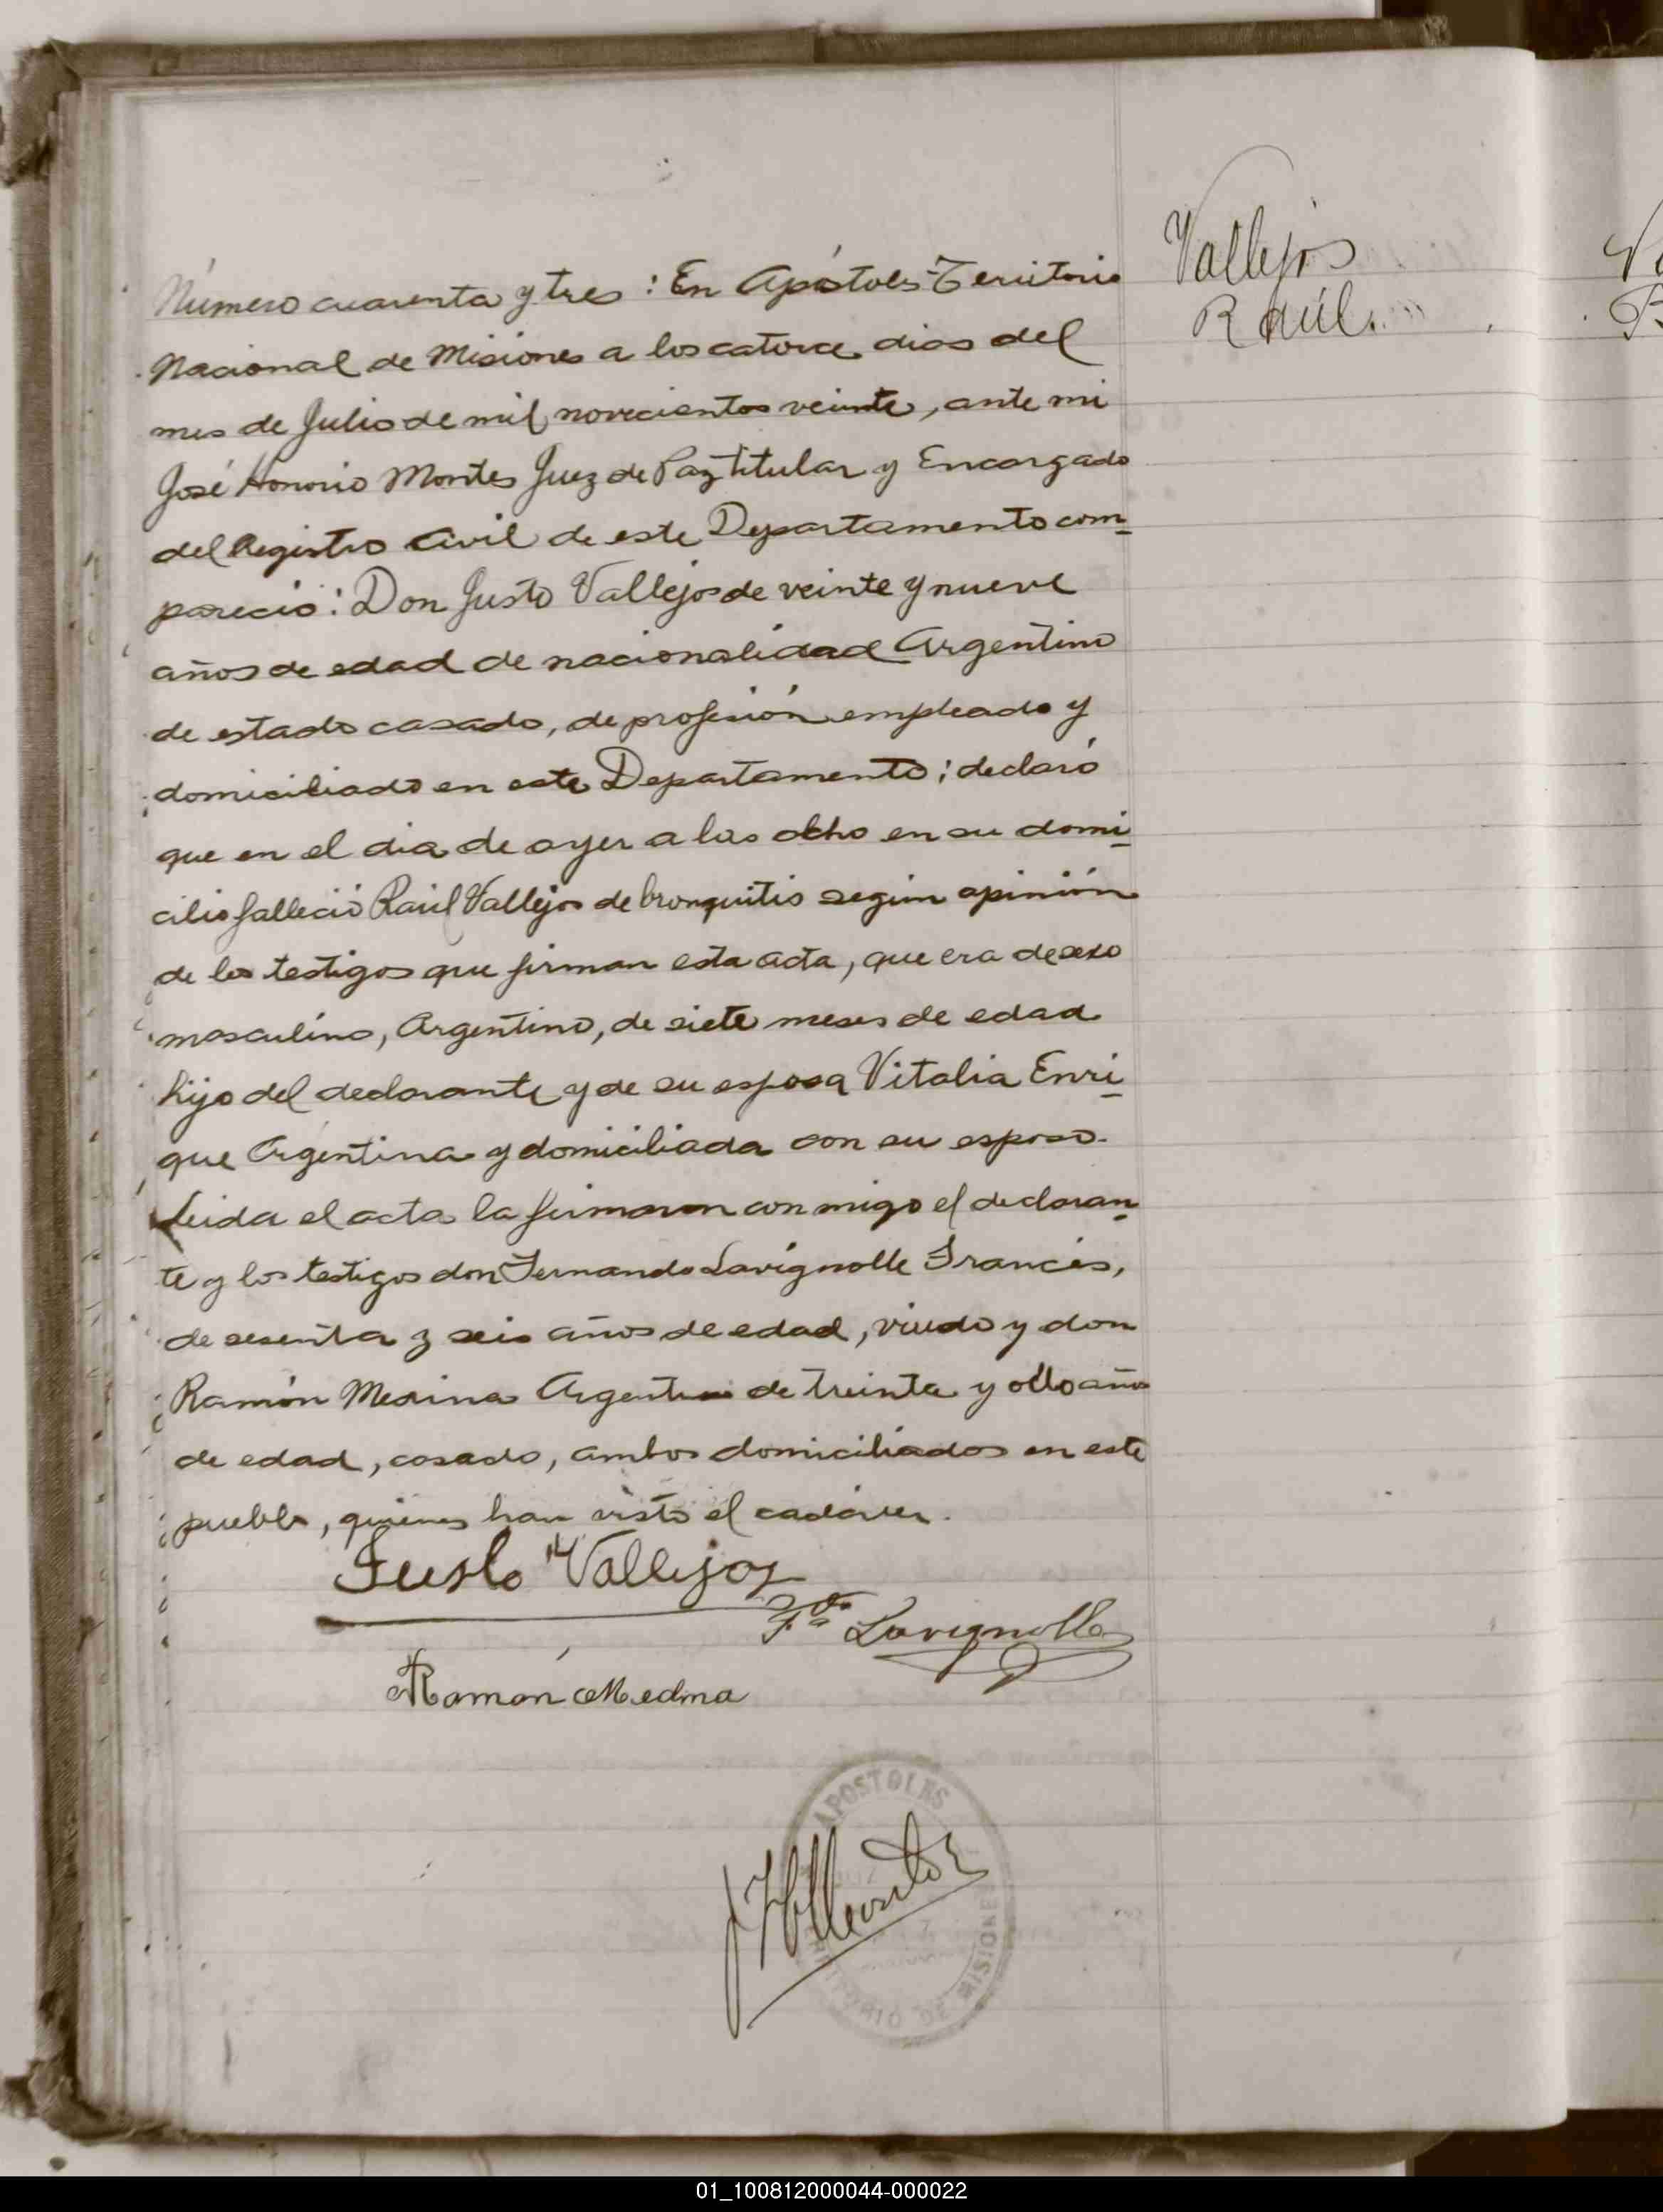 Vallejos
Raúl.
Número cuarenta y tres : En Apóstoles-Territorio
Nacional de Misiones a los catorce dias del
mes de Julio de mil novecientos veinte, ante mi
José Honorio Montes Juez de Paz Titular y Encargado
del Registro Civil de este Departamento com-
pareció : Don Justo Vallejos de veinte y nueve
años de edad de nacionalidad Argentino
de estado casado, de profesión empleado y
domiciliado en este Departamento ; declaró
que en el dia de ayer a las ocho en su domi-
cilio falleció Raúl Vallejos de bronquitis según opinión
de los testigos que firman esta acta, que era de sexo
masculino, Argentino, de siete meses de edad
hijo del declarante y de su esposa Vitalia Enri-
que Argentina y domiciliada con su esposo.
Leida el acta la firmaron conmigo el declaran-
te y los testigos don Fernando Lavignolle Francés,
de sesenta y seis años de edad, viudo y don
Ramón Medina Argentino de treinta y ocho años
de edad, casado, ambos domiciliados en este
pueblo, quienes han visto el cadáver.
Justo Vallejos
Fdo Lavignolle
Ramón Medina
APOSTOLES
TERRITORIO DE MISIONES
JHMontes
01_100812000044-000022